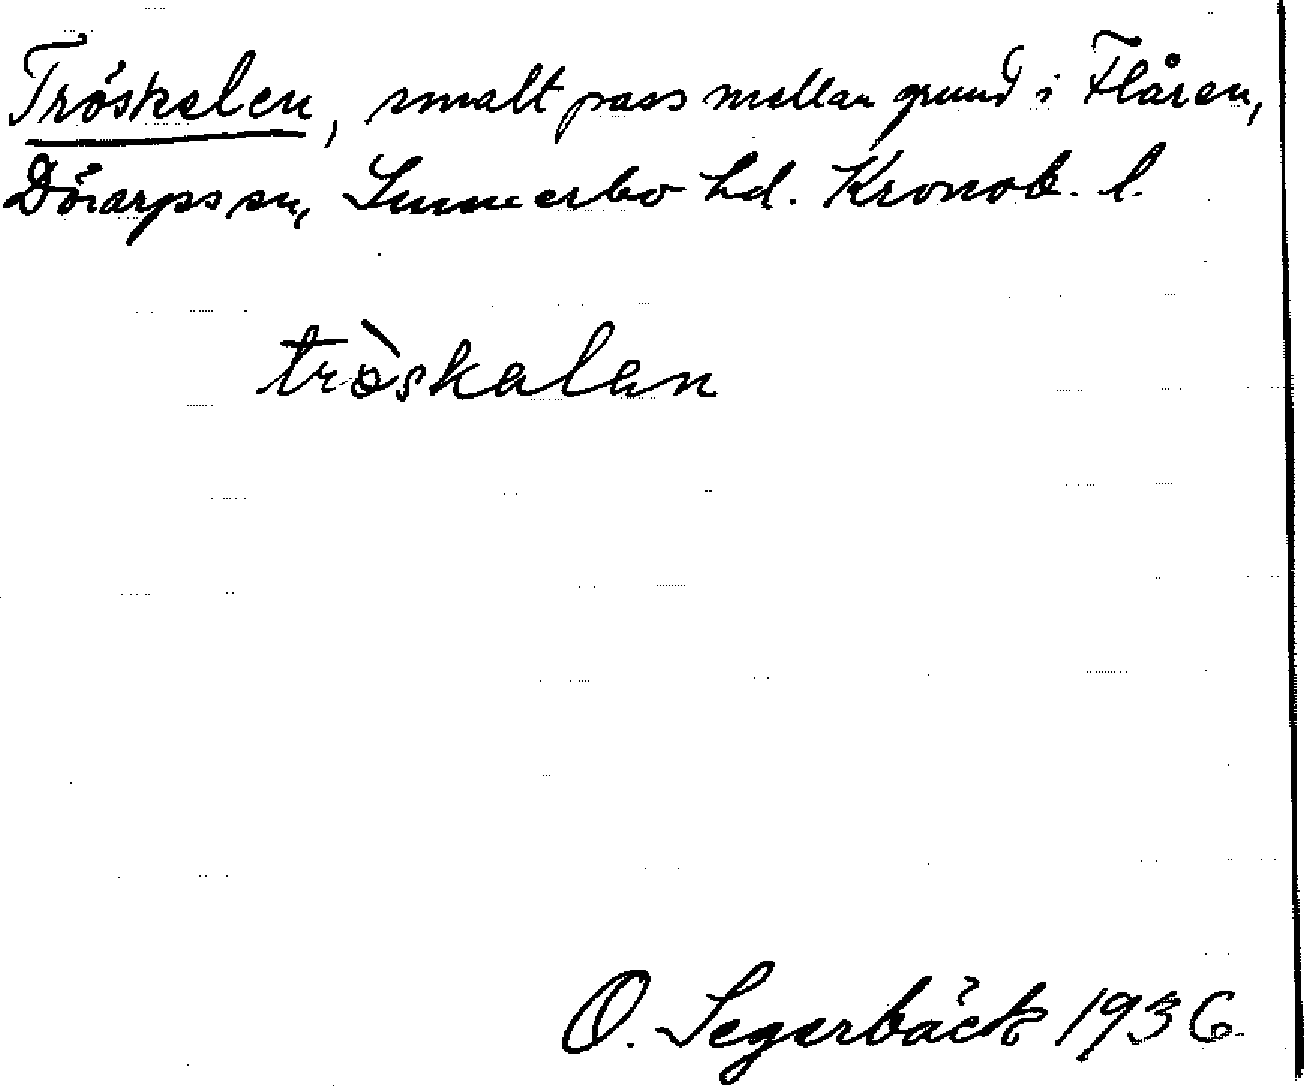 Tröskelen, smalt pass mellan grund i Flåren,
Dörarps sn, Sunnerbo hd. Kronob. l.
tròskalan
O. Segerbäck 1936